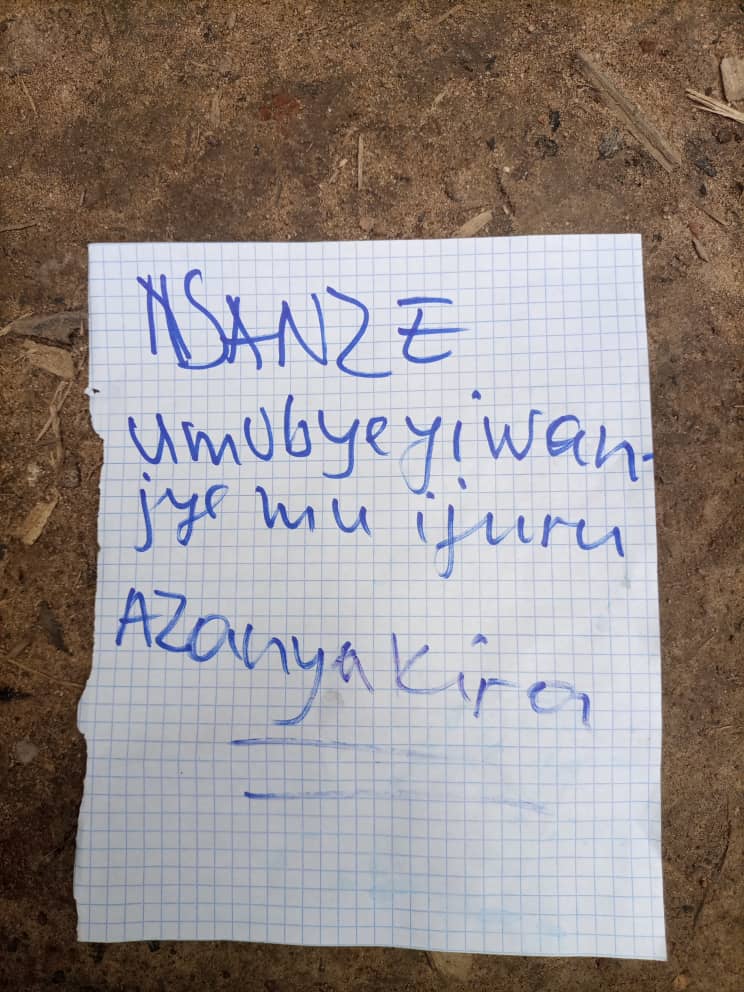 NSANZE
umubyeyiwan-
jye mu ijuru
AZanyakira